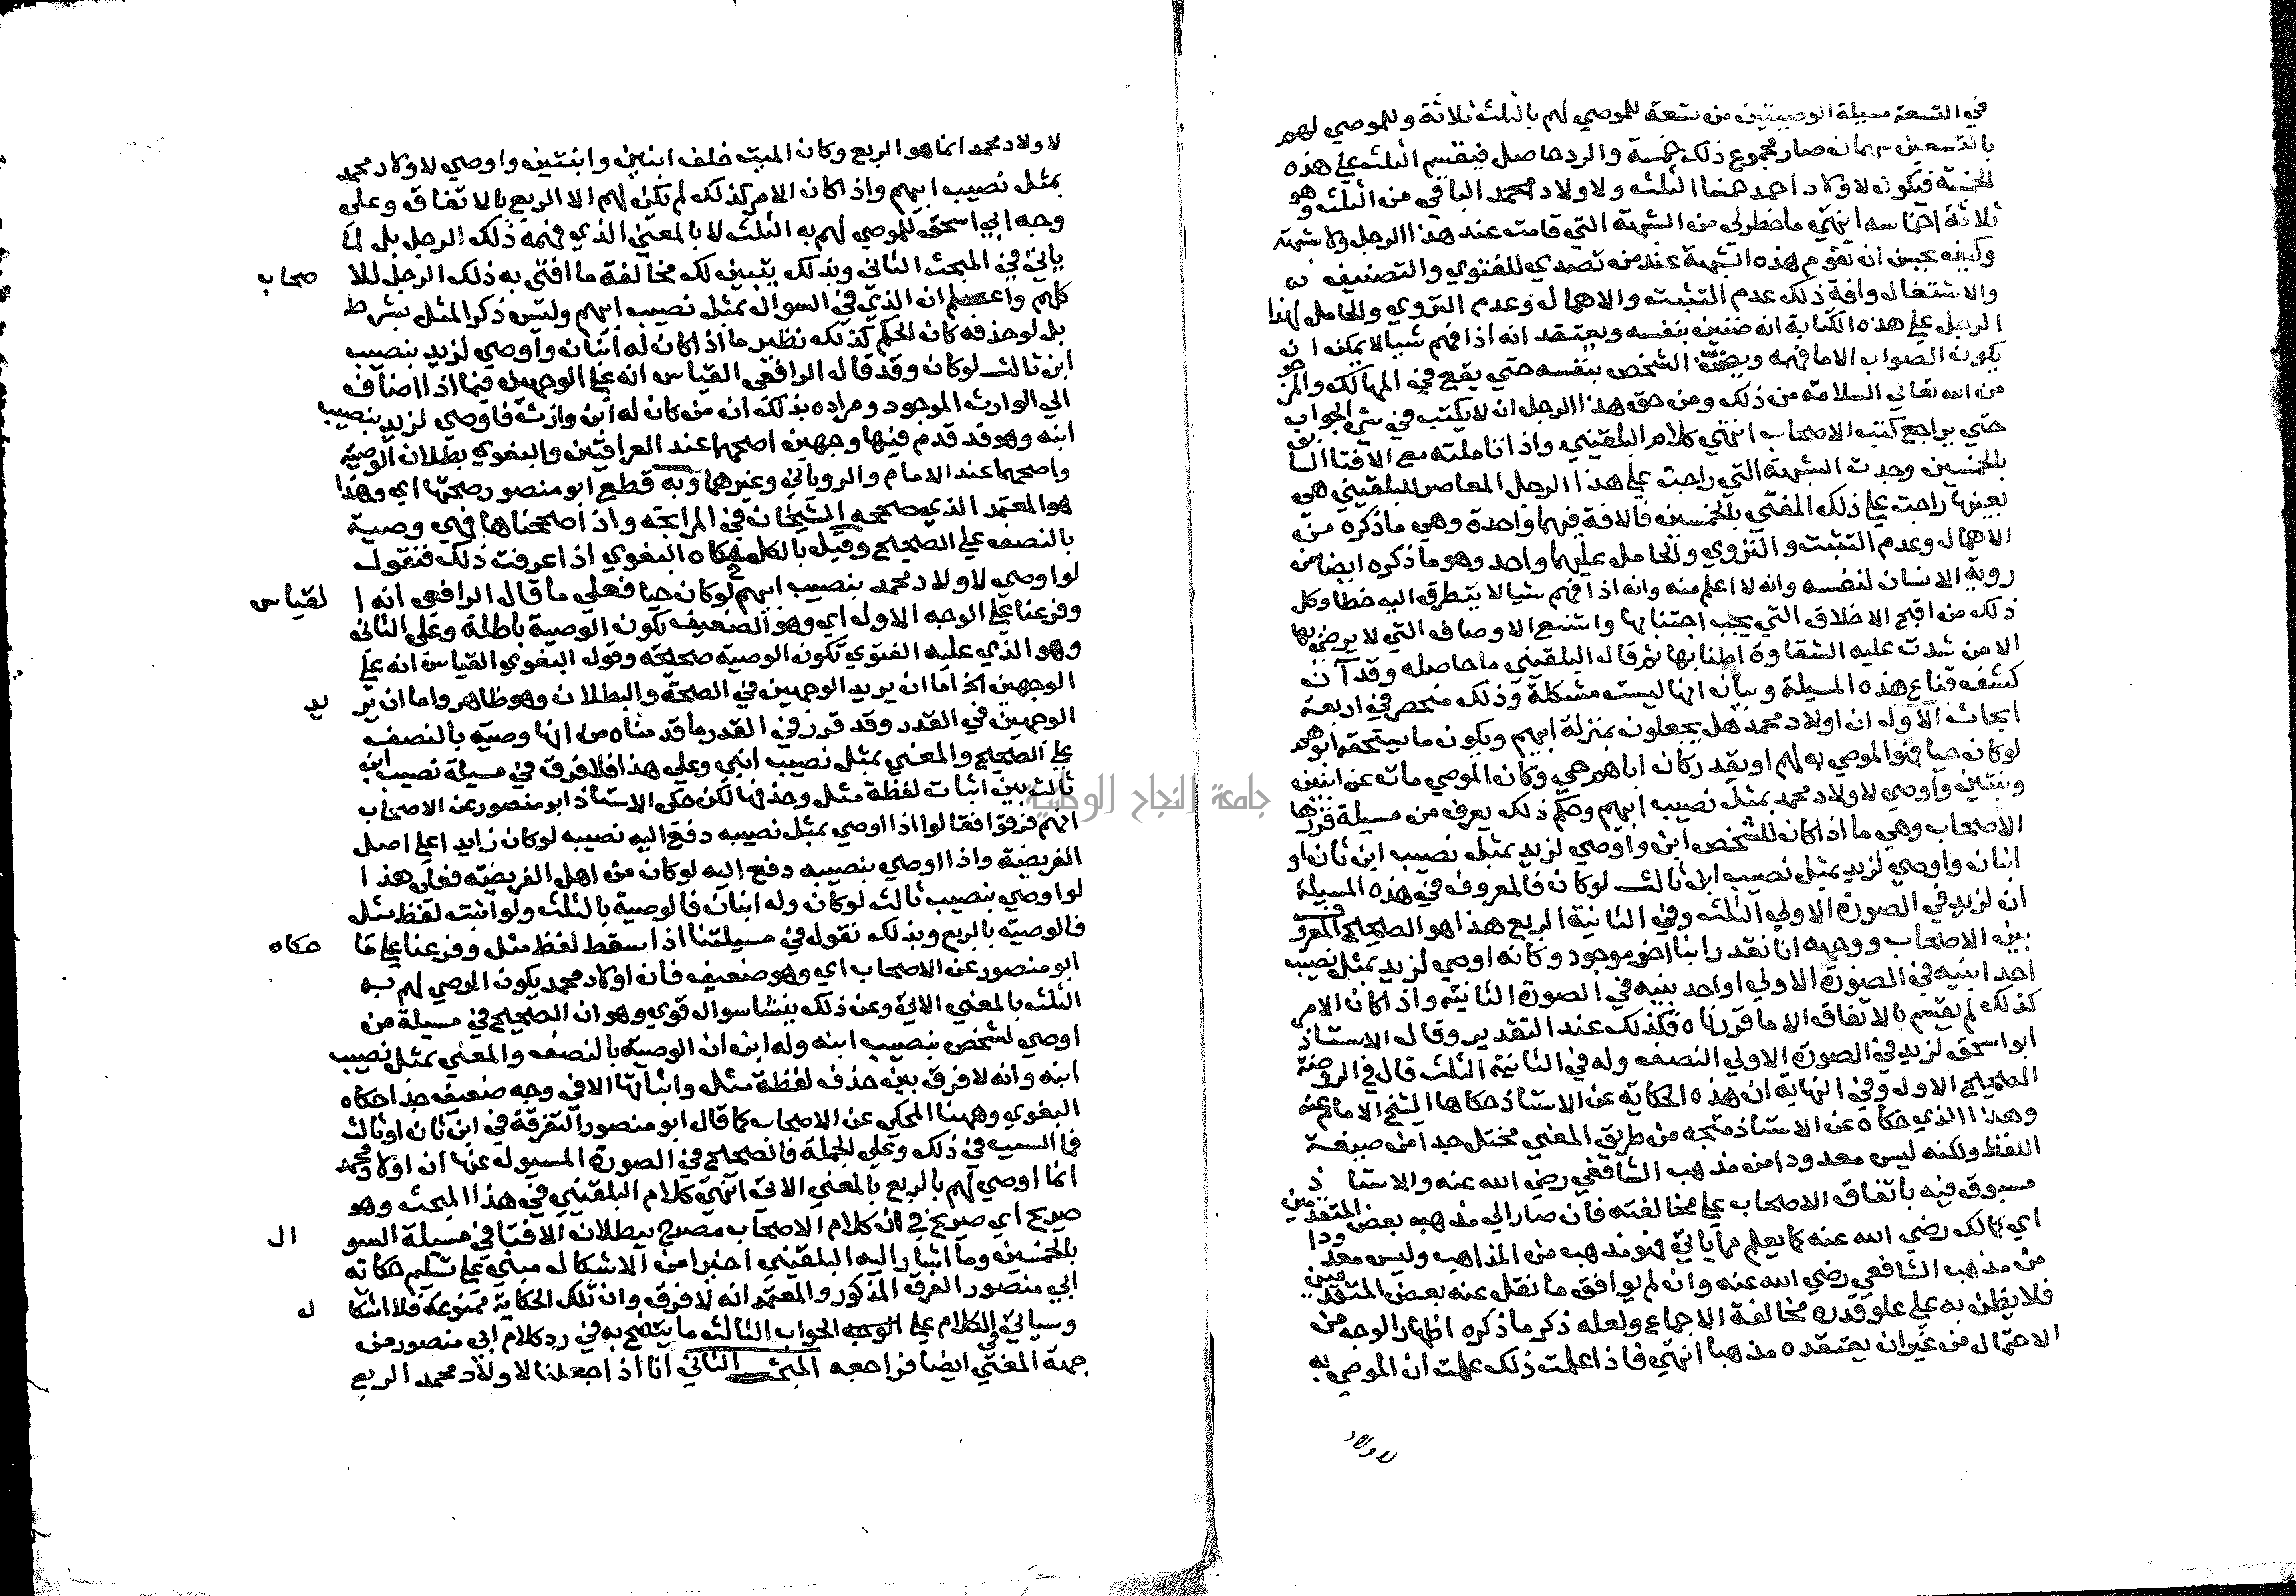 في التسعة مسيلة الوصيتين من تسعة للموصي لهم بالثلث ثلاثة وللموصي لهم
بالتسعين سهمان صار مجموع ذلك خمسة والرد حاصل فيقسم الثلث علي هذه
الخمسة فيكون لاولاد احمد خمسا الثلث ولاولاد محمد الباقي من الثلث وهو
ثلاثة اخماسه انتهي ما خطر لي من الشبهة التي قامت عند هذا الرجل ولا شبهة
وكيف يحسن ان تقوم هذه الشبهة عند من تصدي للفتوي والتصنيف
والاشتغال وافة ذلك عدم التثبت والاهمال وعدم التروي والحامل لهذا
الرجل علي هذه الكتابة انه ضنين بنفسه ويعتقد انه اذا فهم شيا لا يمكن ان
يكون الصواب الا ما فهمه الشخص بنفسه حتي يقع في المهالك والمرجو
من الله تعالي السلامة من ذلك ومن حق هذا الرجل ان لا يكتب في شي الجواب
حتي يراجع كتب الاصحاب انتهي كلام البلقيني واذا تاملته مع الافتا السابق
بالخمسين وجدت الشبهة التي راجت علي هذا الرجل المعاصر للبلقيني هي
بعينها راجت علي ذلك المفتي بالخمسين فالافة فيهما واحدة وهي ما ذكره من
الاهمال وعدم التثبت والتروي والحامل عليهما واحد وهو ما ذكره ايضا من
روية الانسان لنفسه وانه لا اعلم منه وانه اذا فهم شيا لا يتطرق اليه خطا وكل
ذلك من اقبح الاخلاق التي يجب اجتنابها واشنع الاوصاف التي لا يرضي بها
الا من شدت عليه الشقاوة اطنابها ثم قال البلقيني ما حاصله وقد آن
كشف قناع هذه المسيلة وبيان انها ليست مشكلة وذلك منحصر في اربعة
ابحاث الاول ان اولاد محمد هل يجعلون بمنزلة ابيهم ويكون ما يستحقه ابوهم
لوكان حيا هو الموصي به لهم او يقدر كان اباهم حي وكان الموصي مات عن ابنين
وبنتين واوصي لاولاد محمد بمثل نصيب ابيهم وحكم ذلك يعرف من مسيلة قررها
الاصحاب وهي ما اذا كان للشخص ابن واوصي لزيد بمثل نصيب ابن ثان او
ابنان واوصي لزيد بمثل نصيب ابن ثالث لوكان فالمعروف في هذه المسيلة
ان لزيد في الصورة الاولي الثلث وفي الثانية الربع هذا هو الصحيح المعروف
بين الاصحاب ووجهه انا نقدر ابنا اخر موجود وكانه اوصي لزيد بمثل نصيب
احد ابنيه في الصورة الاولي او احد بنيه في الصورة الثانية واذا كان الامر
كذلك لم يقسم بالاتفاق الا ما قررناه فكذلك عند التقدير وقال الاستاذ
ابو اسحق لزيد في الصورة الاولي النصف وله في الثانية الثلث قال في الروضة
الصحيح الاول وفي النهاية ان هذه الحكاية عن الاستاذ حكاها الشيخ الامام عنه
وهذا الذي حكاه عن الاستاذ متجه من طريق المعني مختل جدا من صيغة
اللفظ ولكنه ليس معدودا من مذهب الشافعي رضي الله عنه والاستاذ
مسبوق فيه باتفاق الاصحاب علي مخالفته فان صار الي مذهبه بعض المتقدمين
اي كمالك رضي الله عنه كما يعلم مما ياتي فهو مذهب من المذاهب وليس معدودا
من مذهب الشافعي رضي الله عنه وان لم يوافق ما نقل عنه بعض المتقدمين
فلا يظن به علي علو قدره مخالفة الاجماع ولعله ذكر ما ذكره اظهار الوجه من
الاحتمال من غير ان يعتقده مذهبا انتهي فاذا علمت ذلك علمت ان الموصي به
لاولاد
لاولاد محمد انما هو الربع وكان الميت خلف ابنين وابنتين واوصي لاولاد محمد
بمثل نصيب ابيهم واذا كان الامر كذلك لم يكن لهم الا الربع بالاتفاق وعلي
وجه ابي اسحق للموصي لهم به الثلث لا بالمعني الذي فهمه ذلك الرجل بل لما
ياتي في المبحث الثاني وبذلك يتبين لك مخالفة ما افتي به ذلك الرجل للاصحاب
كلهم واعلم ان الذي في السوال بمثل نصيب ابيهم وليس ذكر المثل بشرط
بل لو حذفه كان الحكم كذلك نظير ما اذا كان له ابنان واوصي لزيد بنصيب
ابن ثالث لوكان وقد قال الرافعي القياس انه علي الوجهين فيما اذا اضاف
الي الوارث الموجود ومراده بذلك ان من كان له ابن وارث فاوصي لزيد بنصيب
ابنه وهو قد قدم فيها وجهين اصحهما عند العراقيين والبغوي بطلان الوصية
واصحهما عند الامام والروياني وغيرهما وبه قطع ابو منصور صحتها اي وهذا
هو المعتمد الذي صححه الشيخان في المرابحة واذا صححناها فهي وصية
بالنصف علي الصحيح وقيل بالكل حكاه البغوي اذا عرفت ذلك فنقول
لو اوصي لاولاد محمد بنصيب ابيهم لوكان حيا فعلي ما قال الرافعي انه القياس
وفرعنا علي الوجه الاول اي وهو الضعيف تكون الوصية باطلة وعلي الثاني
وهو الذي عليه الفتوي تكون الوصية صحيحة وقول البغوي القياس انه علي
الوجهين الخ اما ان يريد الوجهين في الصحة والبطلان وهو ظاهر واما ان يريد
الوجهين في القدر وقد قرر في القدر ما قدمناه من انها وصية بالنصف
علي الصحيح والمعني بمثل نصيب ابني وعلي هذا فلا فرق في مسيلة نصيب ابن
ثالث بين اثبات لفظة مثل وحذفها لكن حكي الاستاذ ابو منصور عن الاصحاب
انهم فرقوا فقالوا اذا اوصي بمثل نصيبه دفع اليه نصيبه لوكان زايدا علي اصل
الفريضة واذا اوصي بنصيبه دفع اليه لوكان من اهل الفريضة فعلي هذا
لو اوصي بنصيب ثالث لوكان وله ابنان فالوصية بالثلث ولو اثبت لفظ مثل
فالوصية بالربع وبذلك نقول في مسيلتنا اذا اسقط لفظ مثل وفرعنا علي ما حكاه
ابو منصور عن الاصحاب اي وهو ضعيف فان اولاد محمد يكون الموصي لهم به
الثلث بالمعني الاتي وعن ذلك ينشا سوال قوي وهو ان الصحيح في مسيلة من
اوصي لشخص بنصيب ابنه وله ابن ان الوصية بالنصف والمعني بمثل نصيب
ابنه وانه لا فرق بين حذف لفظة مثل واثباتها الا في وجه ضعيف جدا حكاه
البغوي وههنا المحكي عن الاصحاب كما قال ابو منصور التفرقة في ابن ثان او ثالث
فما السبب في ذلك وعلي الجملة فالصحيح في الصورة المسيول عنها ان اولاد محمد
انما اوصي لهم بالربع بالمعني الاتي انتهي كلام البلقيني في هذا المبحث وهو
صريح اي صريح في ان كلام الاصحاب مصرح ببطلان الافتا في مسيلة السوال
بالخمسين وما اشار اليه البلقيني اخيرا من الاشكال مبني علي تسليم حكاية
ابي منصور الفرق المذكور والمعتمد انه لا فرق وان تلك الحكاية ممنوعة فلا اشكال
وسياتي الكلام علي الوجه الجواب الثالث ما يتضح به في رد كلام ابي منصور من
جهة المعني ايضا فراجعه المبحث الثاني انا اذا جعلنا لاولاد محمد الربع
جامعة النجاح الوطنية